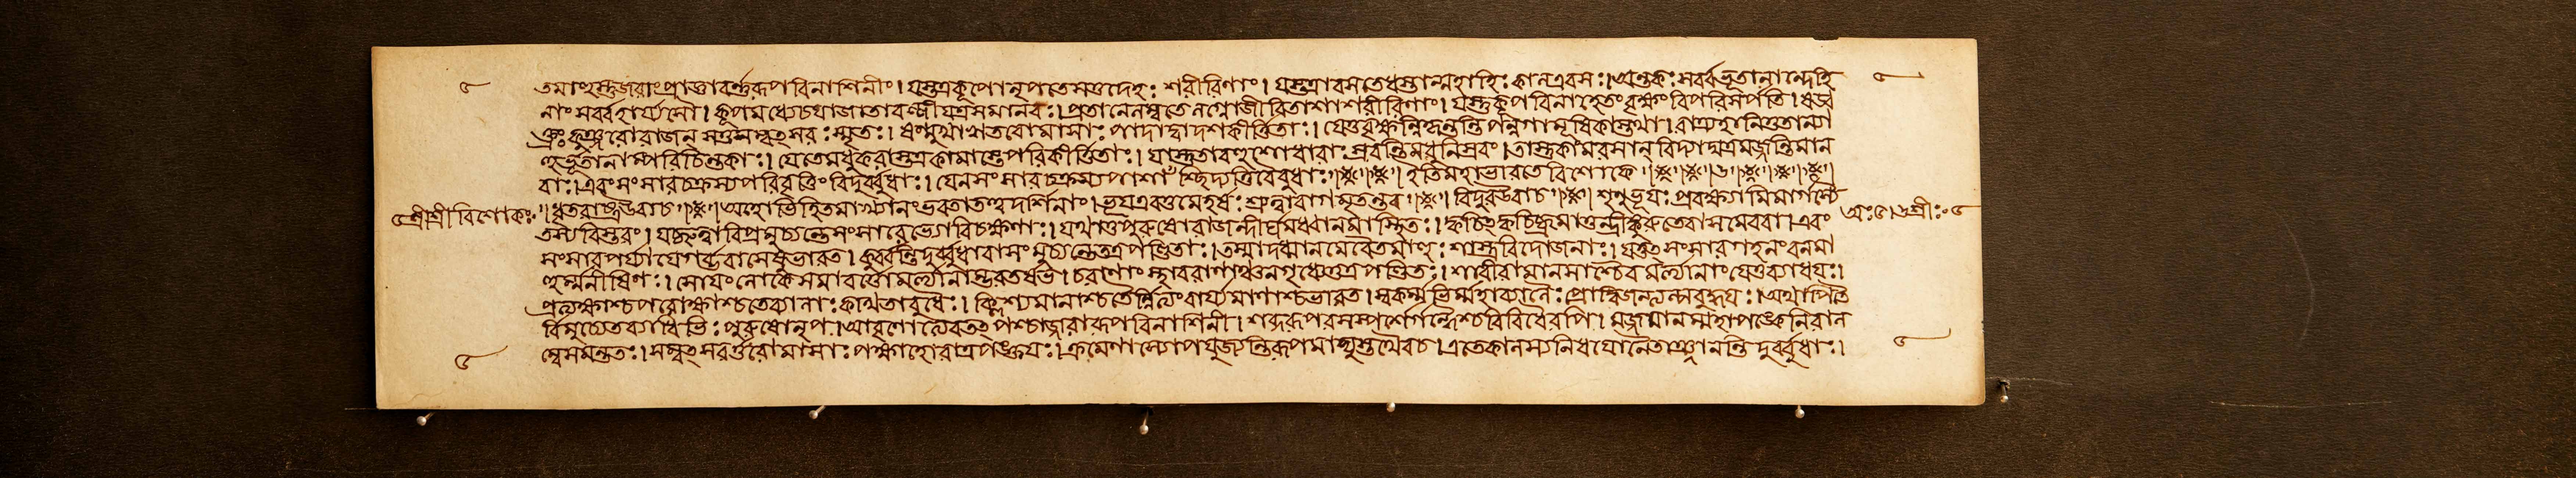 তমাহুস্তুজরাংপ্রাজ্ঞাবর্ণ্ণরূপবিনাশিনীং। যস্তত্রকূপোনৃপতেসতুদেহঃ শরীরিণাং। যস্তত্রাবসতেধস্তান্মহাহিঃ কালএবসঃ। অন্তকঃ সর্ব্বভূতানান্দেহি
নাং সর্ব্বহার্য্যসৌ। কূপমধ্যেচযাজাতাবল্লীযত্রসমানবঃ। প্রতানেলম্বতেলগ্নোজীবিতাশাশরীরিণাং। যস্তুকূপবিনাহেতংবৃক্ষংবিপরিসর্পতি। ষড্ব
ক্ত্রঃ কুঞ্জরোরাজন্ সতুসম্বৎসরঃ স্মৃতঃ। ষণ্মুখাঋতবোমাসাঃ পাদাদ্বাদশকীর্ত্তিতাঃ। যেতুবৃক্ষন্নিকৃন্তন্তিপন্নগামূষিকাস্তথা। রাত্র্যহানিতুতান্যা
হুর্ভূতানাম্পরিচিন্তকাঃ। যেতেমধুকরাস্তত্রকামাস্তেপরিকীর্ত্তিতাঃ। যাস্তুতাবহুশোধারাঃ স্রবন্তিমধুনিস্রবং। তাস্তুকামরসান্ বিদ্যাদ্যত্রমজ্জন্তিমান
বাঃ। এবংসংসারচক্রস্যপরিবৃত্তিংবিদুর্ব্বুধাঃ। যেনসংসারচক্রস্যপাশাঁশ্ছিদ্যন্তিবৈবুধাঃ॥ ইতিমহাভারতে বিশোকে॥ ৬॥
৫শ্রীশ্রীবিশোকঃ॰
॥ধৃতরাষ্ট্রউবাচ॥ অহোভিহিতমাখ্যানংভবতাতত্ত্বদর্শিনাং। ভূযএবতুমেহর্ষঃ শ্রুত্বাবাগমৃতন্তব॥ বিদুরউবাচ॥ শৃণুভূযঃ প্রবক্ষ্যামিমার্গস্যৈ
অঃ৫।৬শ্রীঃ॰৫
তস্যবিস্তরং। যচ্ছ্রুত্বাবিপ্রমুচ্যন্তেসংসারেভ্যোবিচক্ষণাঃ। যথাতুপুরুষোরাজন্দীর্ঘমধ্বানমাস্থিতঃ। ক্বচিৎক্বচিচ্ছ্রমাতুন্দ্রীঙ্কুরুতেবাসমেববা। এবং
সংসারপর্য্যাযেগর্ব্ভবাসেষুভারত। কুর্ব্বন্তিদুর্ব্বুধাবাসং মুচ্যন্তেতত্রপণ্ডিতাঃ। তস্মাদধ্বানমেবৈতমাহুঃ শাস্ত্রবিদোজনাঃ। যত্তৎসংসারগহনংবনমা
হুর্ম্মনীষিণঃ। সোযংলোকসমাবর্ত্তোমর্ত্যানাম্ভরতর্ষভ। চরাণাং স্থাবরাণাঞ্চনগৃধ্যেত্তত্রপণ্ডিতঃ। শারীরামানসাশ্চৈবমর্ত্যানাংযেতুব্যাধযঃ।
প্রত্যক্ষাশ্চপরোক্ষাশ্চতেব্যালাঃ কথিতাবুধৈঃ। ক্লিশ্যমানাশ্চতৈর্ন্নিত্যংবার্য্যমাণাশ্চভারত। স্বকর্ম্মভির্ম্মহাব্যালৈঃ প্রোদ্বিজন্ত্যল্পবুদ্ধযঃ। অথাপিতৈ
র্বিমুচ্যেতব্যাধিভিঃ পুরুষোনৃপ। আবৃণোত্যেবতৎপশ্চাজ্জরারূপবিনাশিনী। শব্দরূপরসস্পর্শৈর্গন্ধৈশ্চবিবিধৈরপি। মজ্জমানম্মহাপঙ্কেনিরাল
ম্বেসমন্ততঃ। সম্বৎসরর্ত্তবোমাসাঃ পক্ষাহোরাত্রপঙ্ক্তযঃ। ক্রমেণাস্যোপযুজ্যন্তিরূপমাযুস্তথৈবচ। এতেকালস্যনিধযোনৈতাঞ্জানন্তিদুর্ব্বুধাঃ।